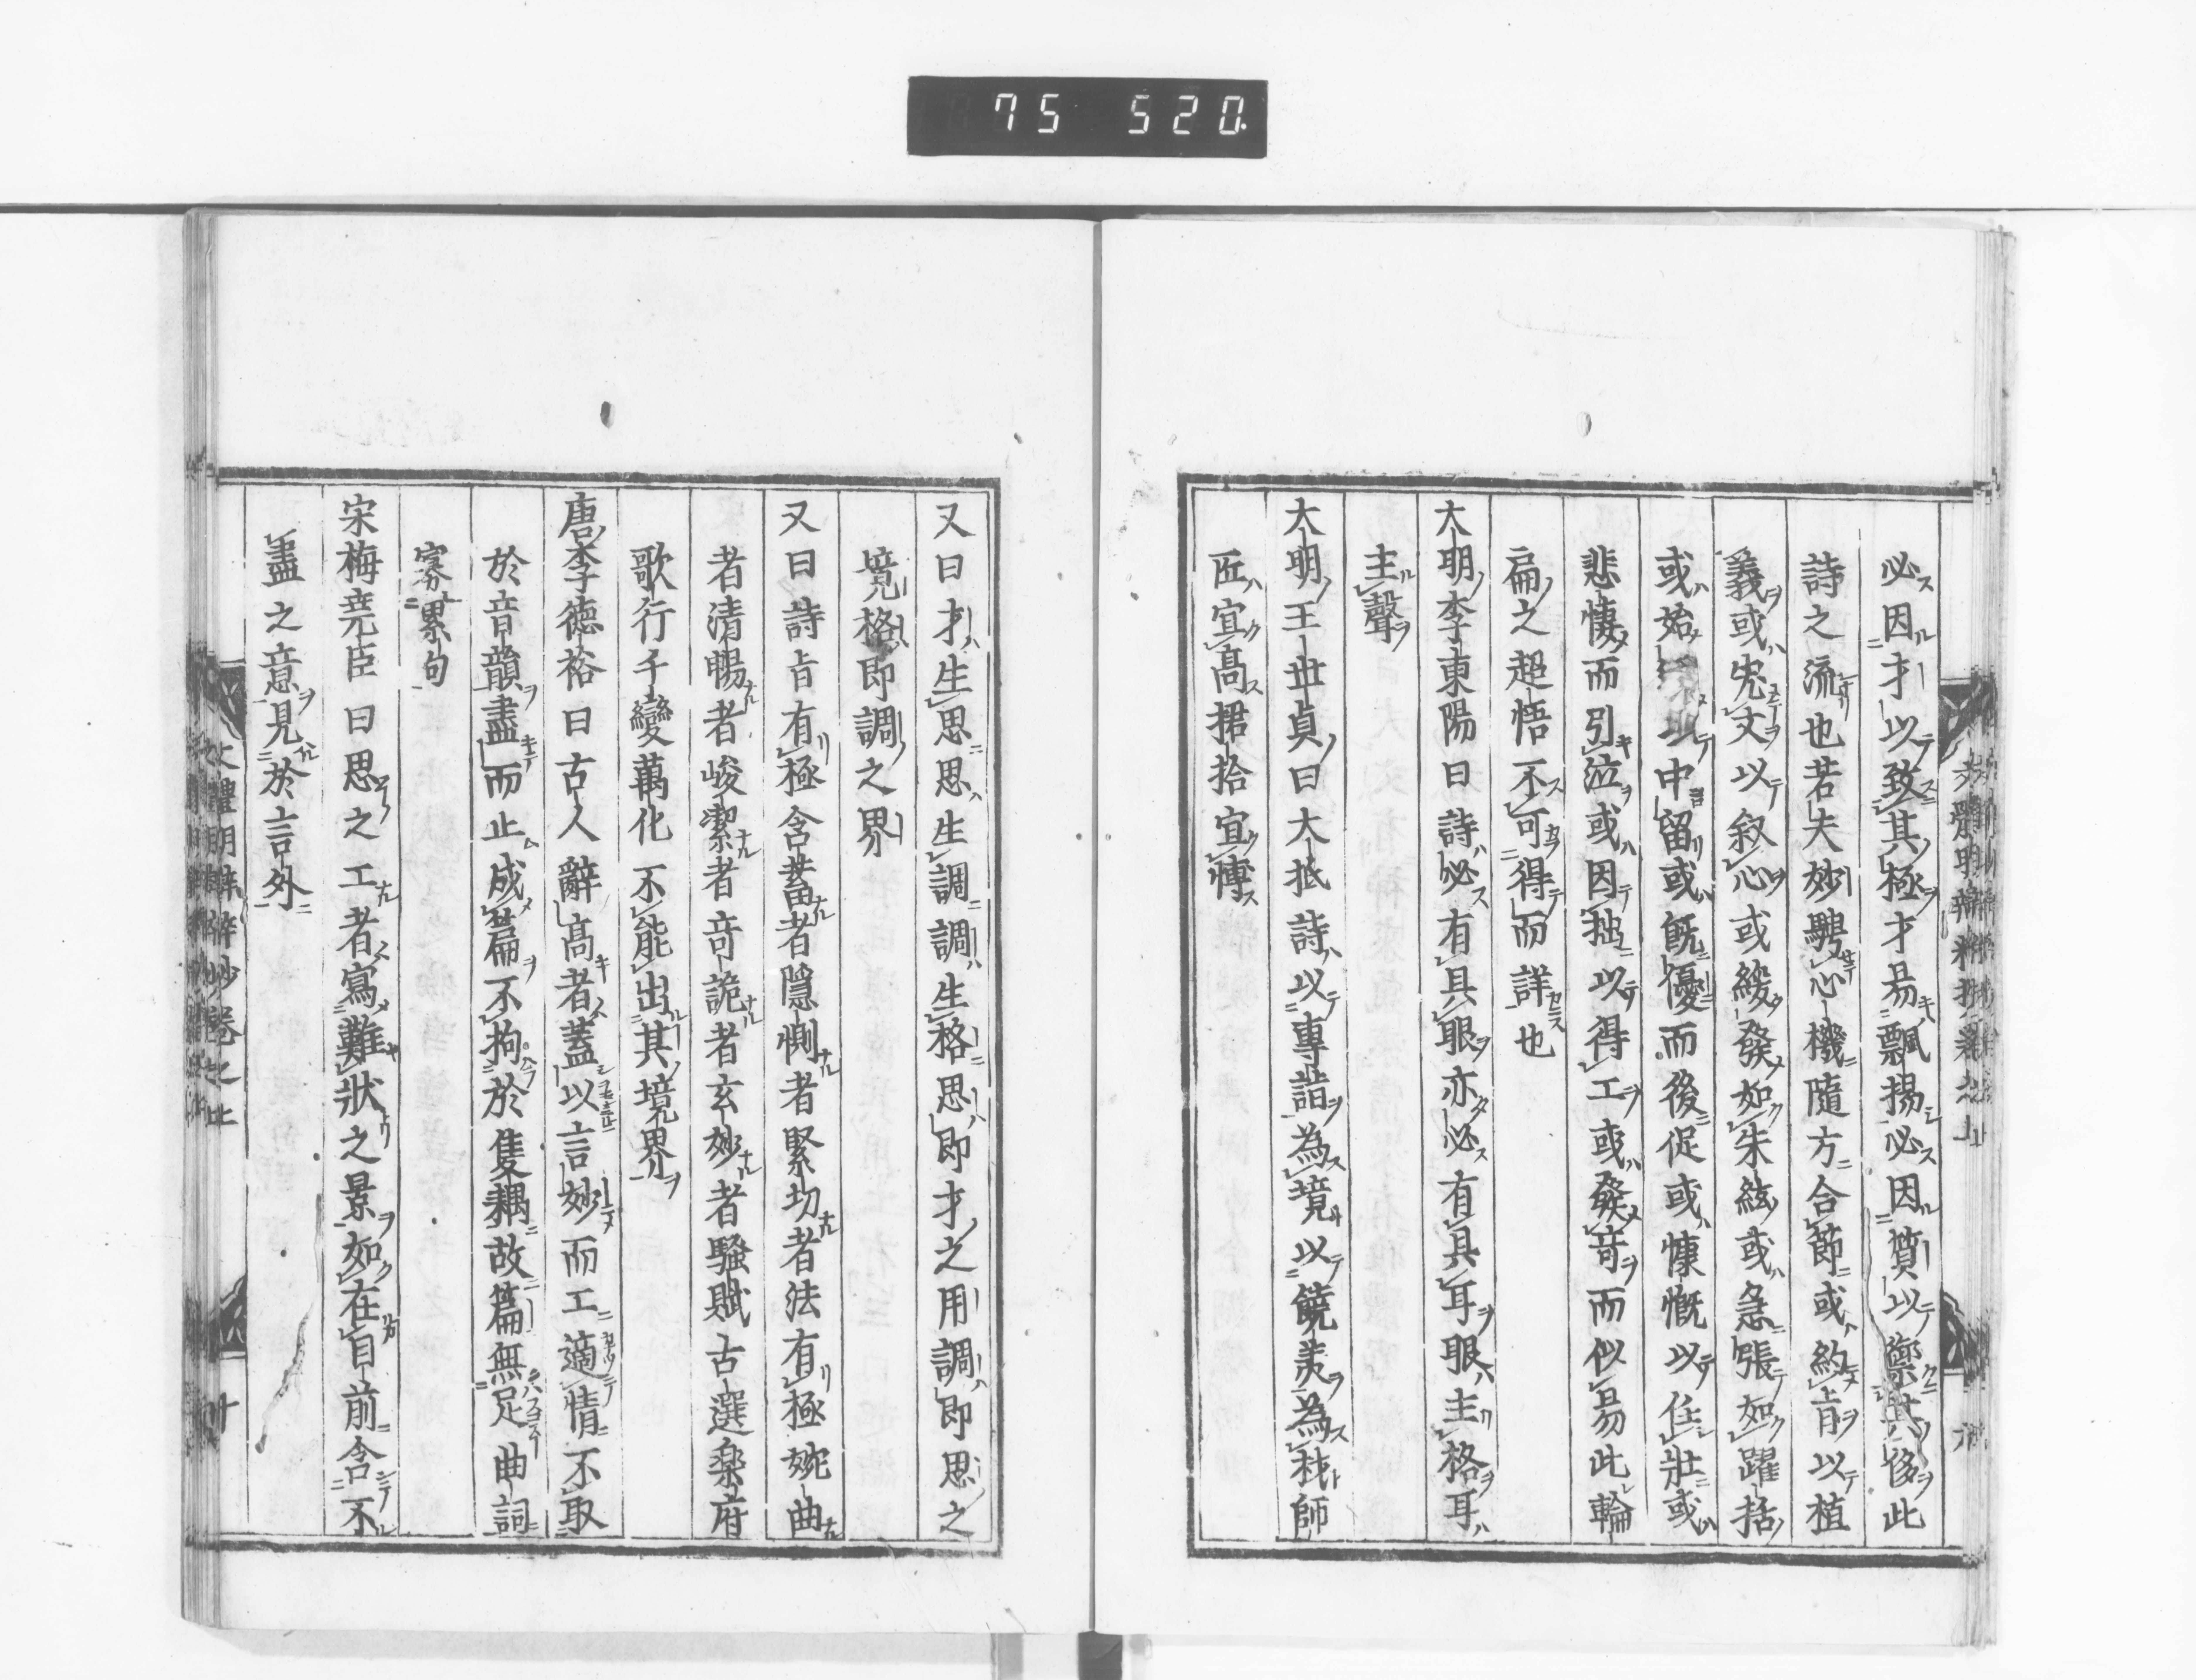 75 520.
必因才以致其極才易飄揚必因質以禦其侈此
詩之流也若夫妙騁心機隨方合節或約旨以植
義或宏文以叙心或緩發如朱絃或急張如躍括
或始迅中留或既優而後促或慷慨以任壯或
悲悽而引泣或因拙以得工或發奇而似易此輪
扁之超悟不可得而詳也
大明李東陽曰詩必有具眼亦必有具耳眼主格耳
主聲
大明王世貞曰大抵詩以專詣為境以饒美為材師
匠宜高捃拾宜博
又曰才生思思生調調生格思即才之用調即思之
境格即調之界
又曰詩旨有極含蓄者隱惻者緊切者法有極婉曲
者清暢者峻潔者奇詭者玄妙者騷賦古選楽府
歌行千變萬化不能出其境界
唐李德裕曰古人辭高者蓋以言妙而工適情不取
於音韻盡而止成篇不拘於隻耦故篇無足曲詞
寡累句
宋梅堯臣曰思之工者寫難狀之景如在目前含不
盡之意見於言外
文體明辯粹抄卷之上
十